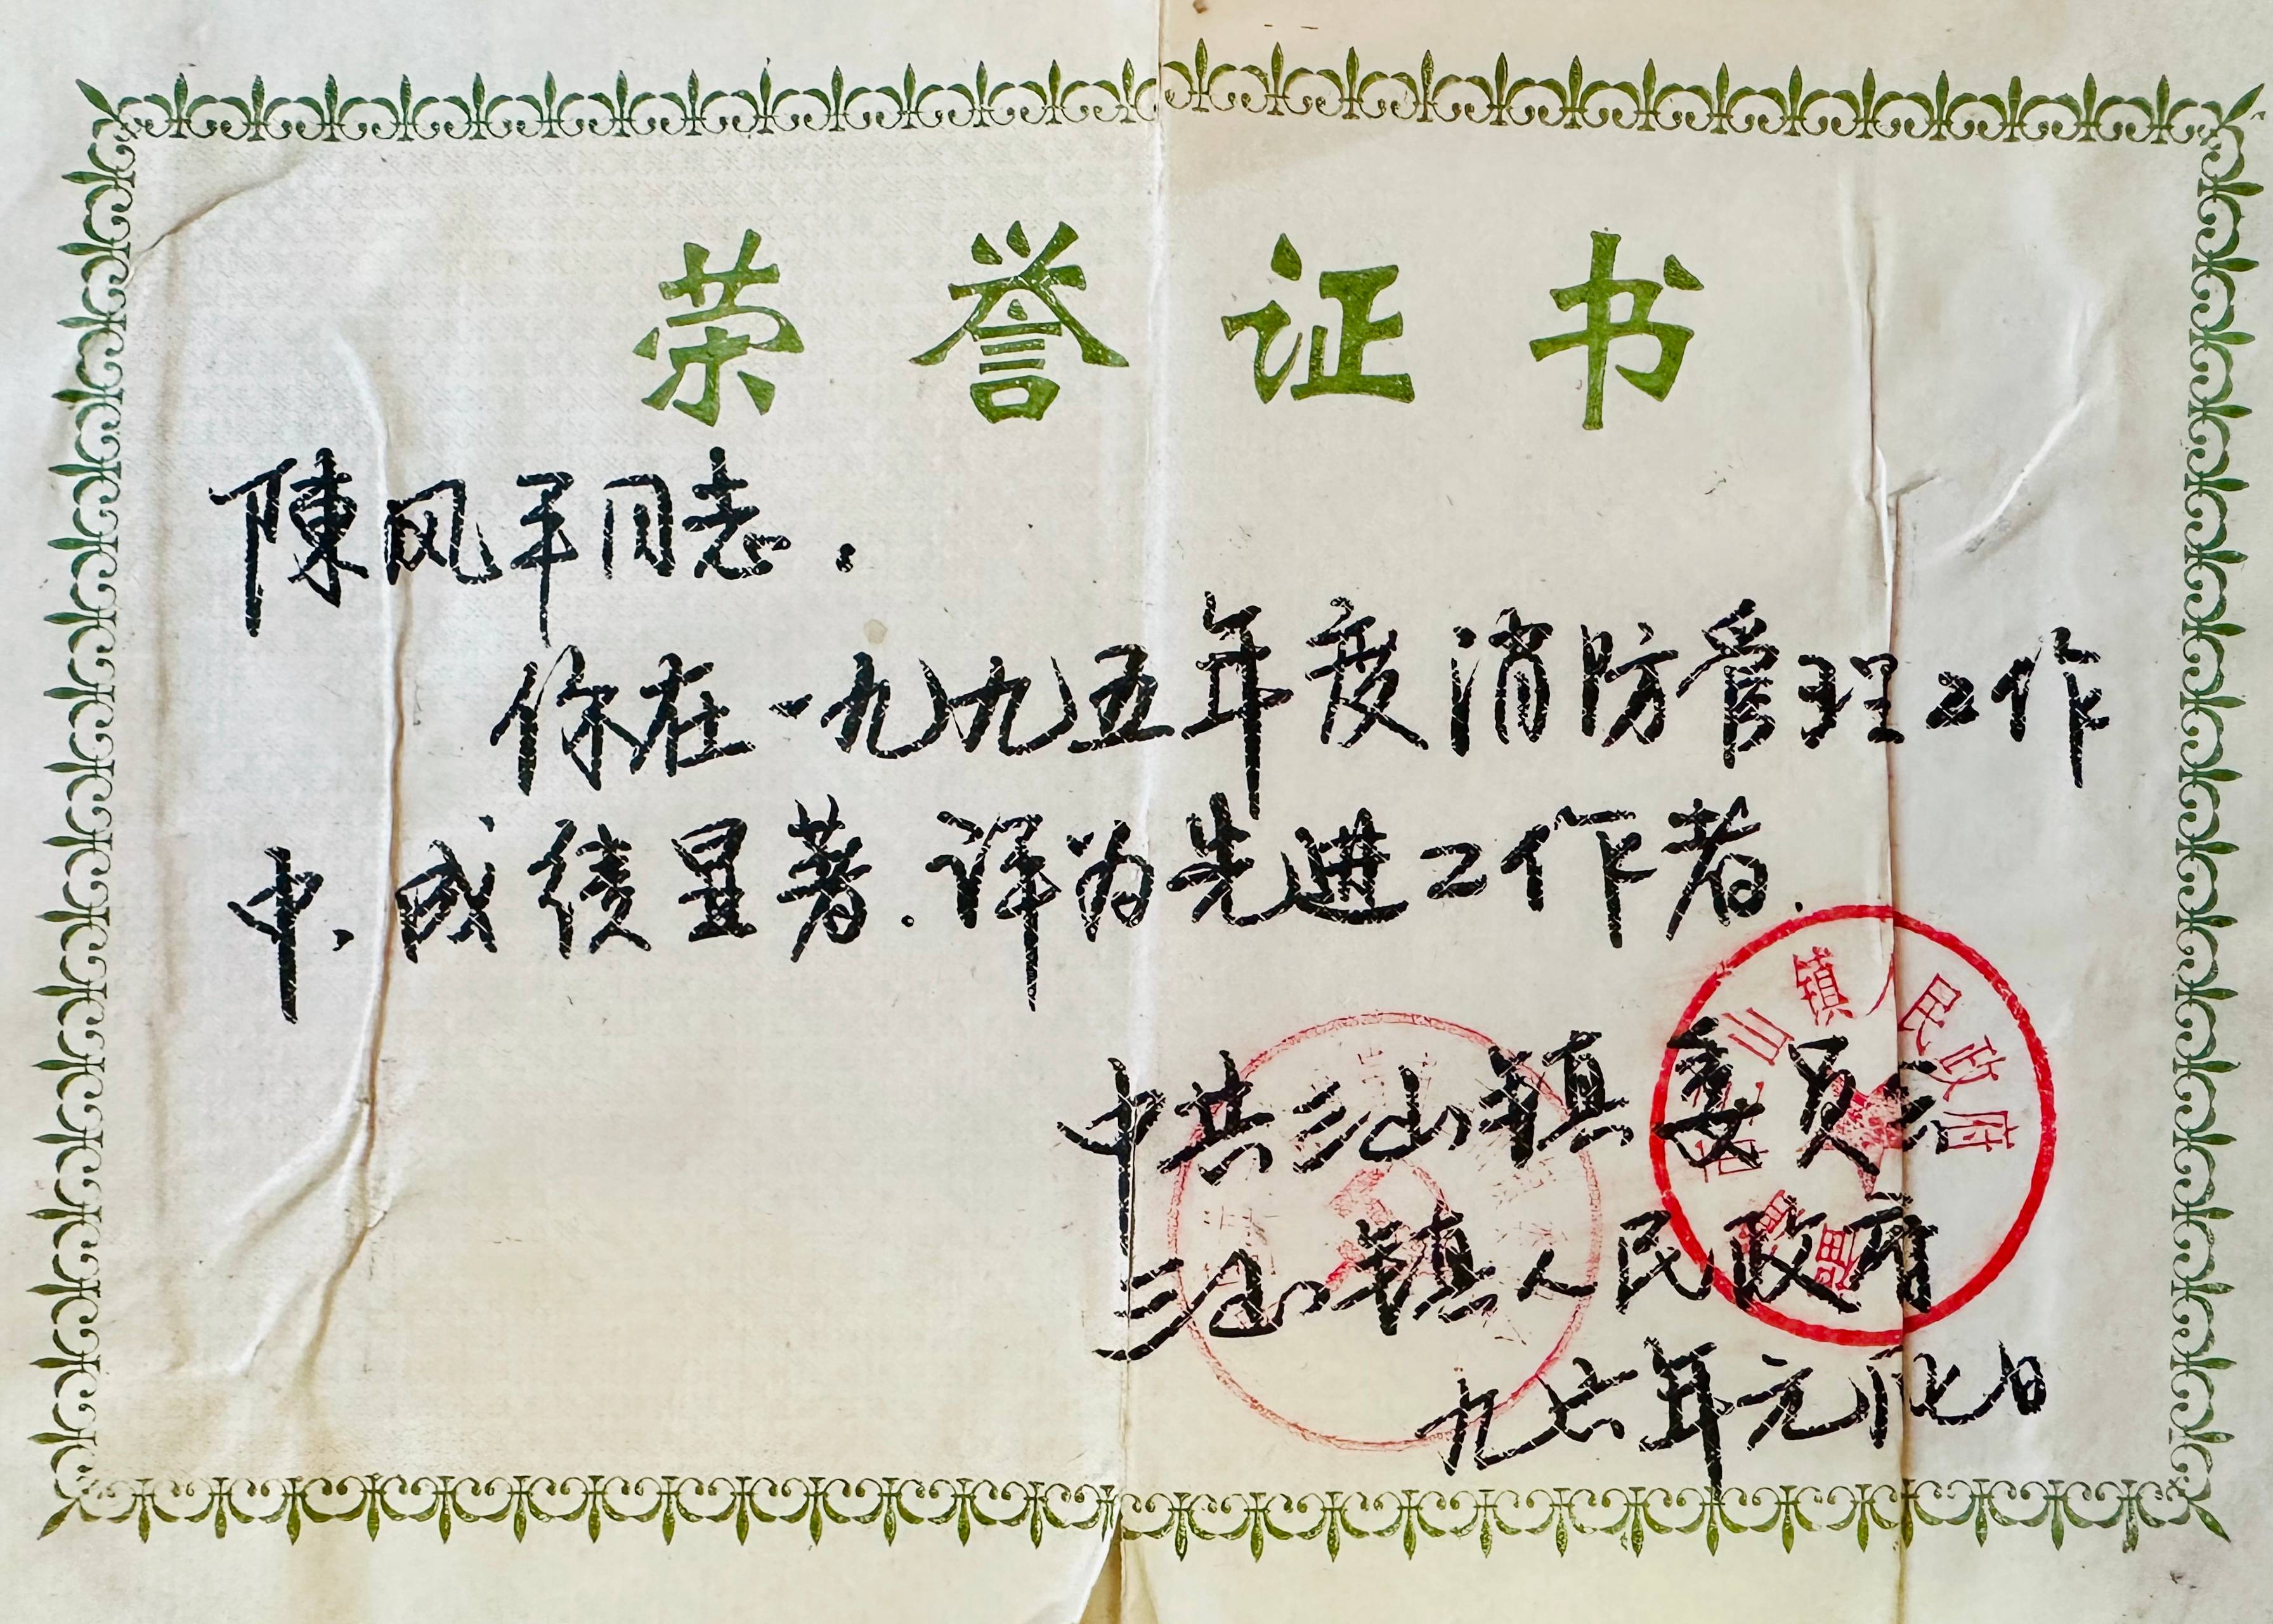 荣誉证书
陳风平同志.
你在一九九五年度消防管理工作
中、成绩显著.评为先进工作者.
中共三山镇委员会
三山镇人民政府
九六年元月
三山镇人民政府